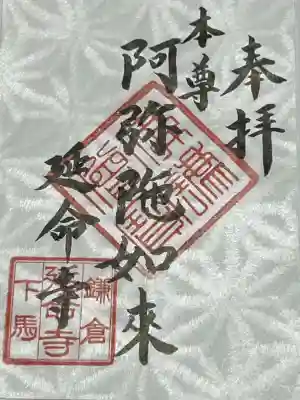 奉拝
本尊
阿弥陀如来
延命寺
鎌倉
延命寺
下馬